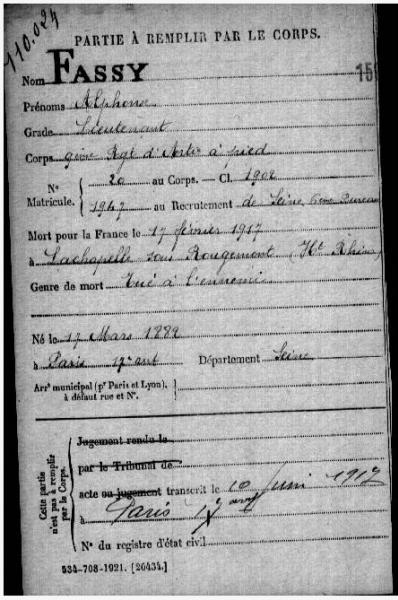 110.024
PARTIE À REMPLIR PAR LE CORPS.
Nom FASSY
Prénoms Alphonse
Grade Lieutenant
Corps Rgt d'Artie à pied
N° Matricule. 20 au Corps. — Cl. 1902
1947 au Recrutement de Seine 6ème Bureau
Mort pour la France le 17 février 1917
à Lachapelle sous Rougemont (Ht Rhin)
Genre de mort Tué à l'ennemi
Né le 17 Mars 1882
à Paris 17e arrt Département Seine
Arrt municipal (pr Paris et Lyon),
à défaut rue et N°.
Cette partie
n'est pas à remplir
par le Corps.
Jugement rendu le
par le Tribunal de
acte ou jugement transcrit le 10 Juin 1917
à Paris 17 arrt
N° du registre d'état civil
534-708-1921. [26434.]